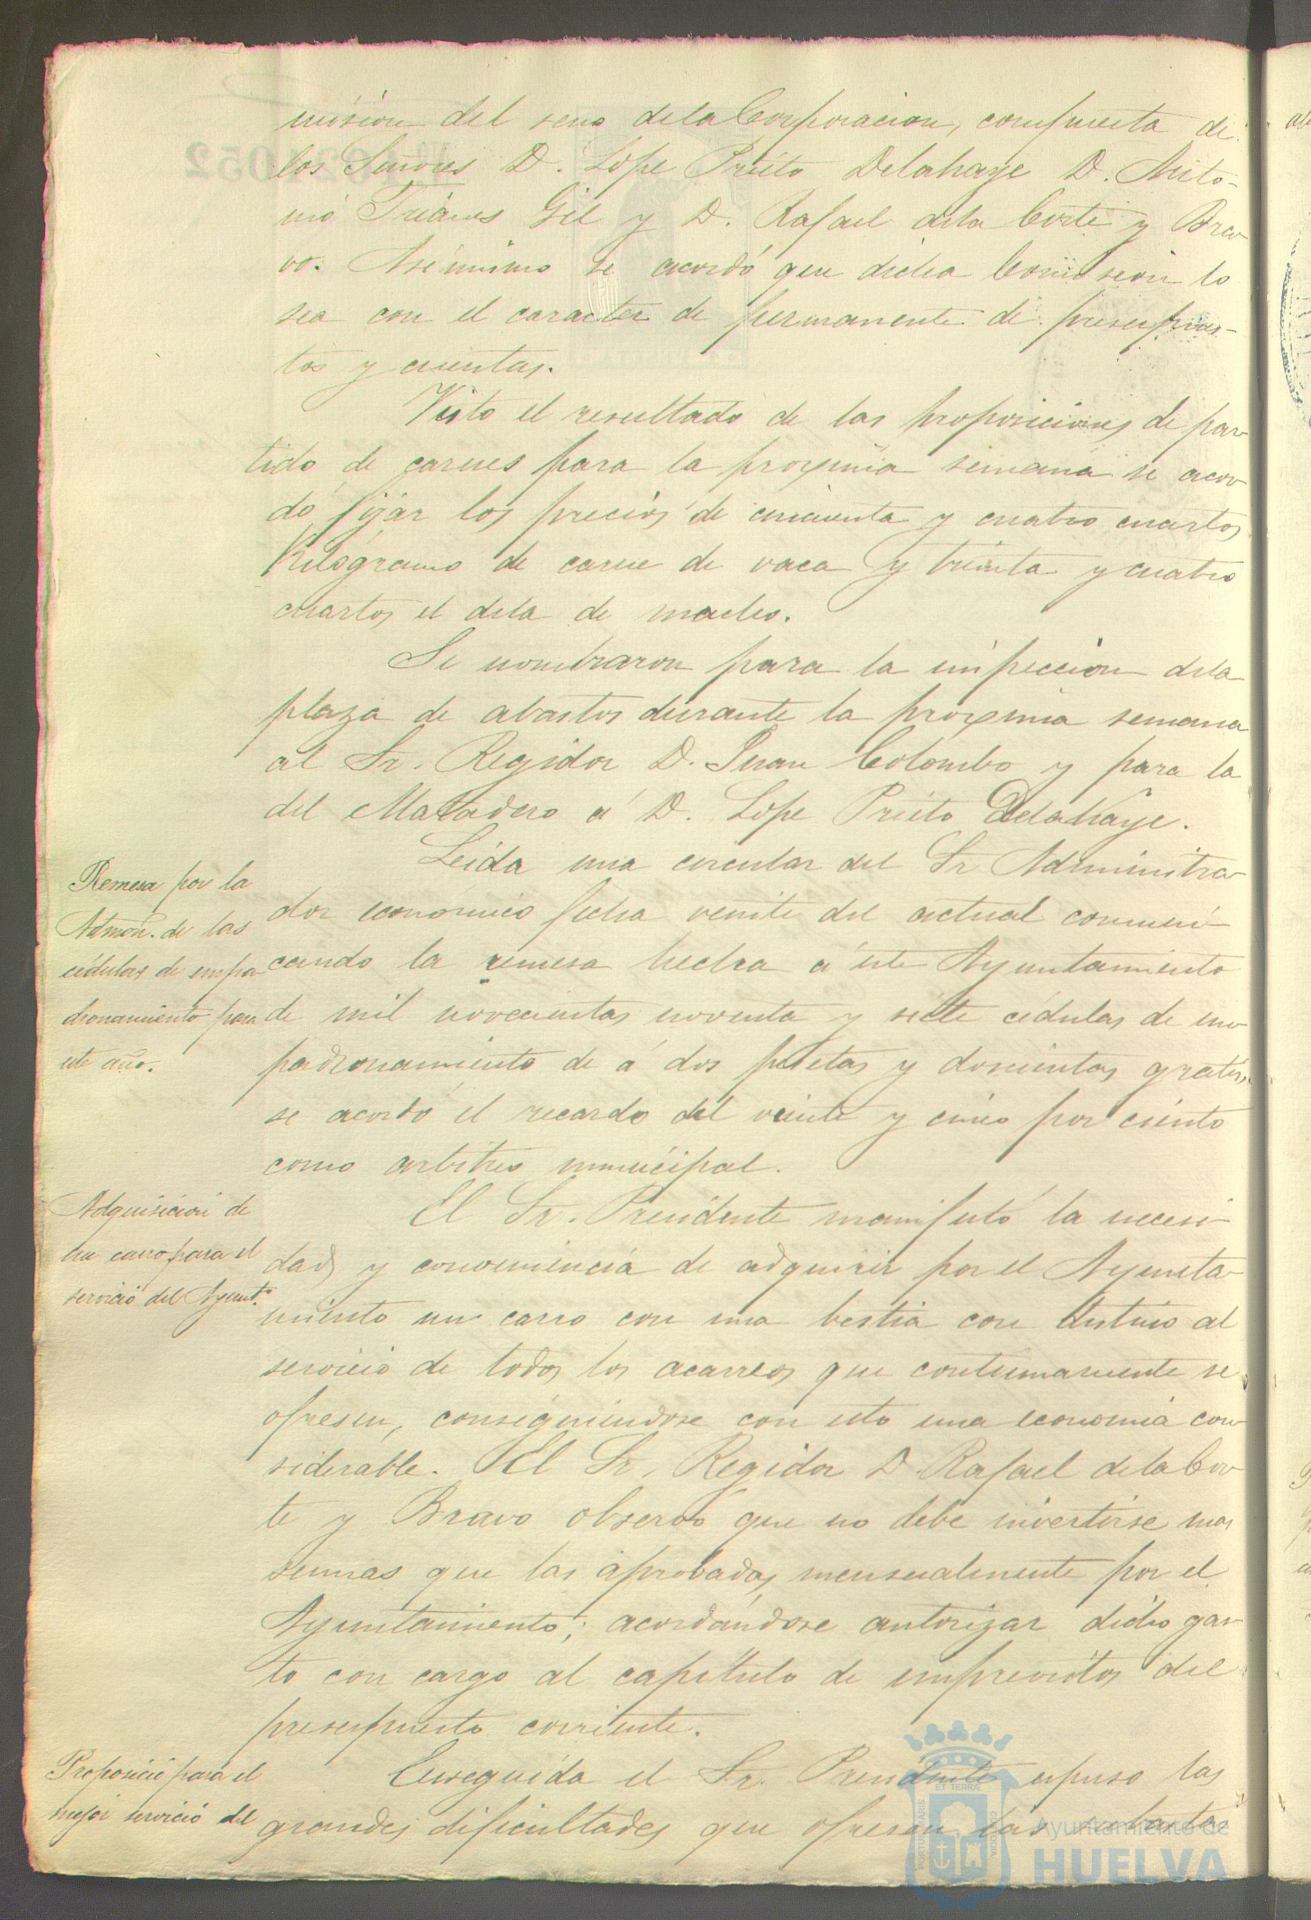 mision del seno de la Corporacion, compuesta de
los Señores D. Lope Prieto Delahaye D. Anto-
nio Trianes Gil y D. Rafael dela Corte y Bra-
vo. Asimismo se acordó que dicha Comision lo
sea con el caracter de permanente de presupues-
tos y cuentas.
Visto el resultado de las proposiciones de par-
tido de carnes para la proxima semana se acor-
dó fijar los precios de cincuenta y cuatro cuartos
Kilógramo de carne de vaca y treinta y cuatro
cuartos el dela de macho.
Se nombraron para la inspeccion dela
plaza de abastos durante la proxima semana
al Sr. Regidor D. Juan Colombo y para la
del Matadero á D. Lope Prieto Delahaye.
Remesa por la
Admon. de las
cédulas de empa-
dronamiento para
este año.
Leida una circular del Sr Administra-
dor económico fecha veinte del actual comuni-
cando la remesa hecha á este Ayuntamiento
de mil novecientas noventa y siete cédulas de em-
padronamiento de á dos pesetas y doscientas gratis,
se acordó el recardo del veinte y cinco por ciento
como arbitrio municipal.
Adquisicion de
un carro para el
servicio del Ayunt.º
El Sr. Presidente manifestó la necesi-
dad y conveniencia de adquirir por el Ayunta-
miento un carro con una bestia con destino al
servicio de todos los acarreos que continuamente se
ofrescen, consiguiendose con esto una economia con-
siderable. El Sr. Regidor D Rafael dela Cor-
te y Bravo observó que no debe invertirse mas
sumas que las aprobadas mensualmente por el
Ayuntamiento; acordándose autorizar dicho gas-
to con cargo al capítulo de imprevistos del
presupuesto corriente.
Proposició para el
mejor servicio del
Enseguida el Sr. Presidente espuso las
grandes dificultades que ofrescen las
Ayuntamiento de
HUELVA